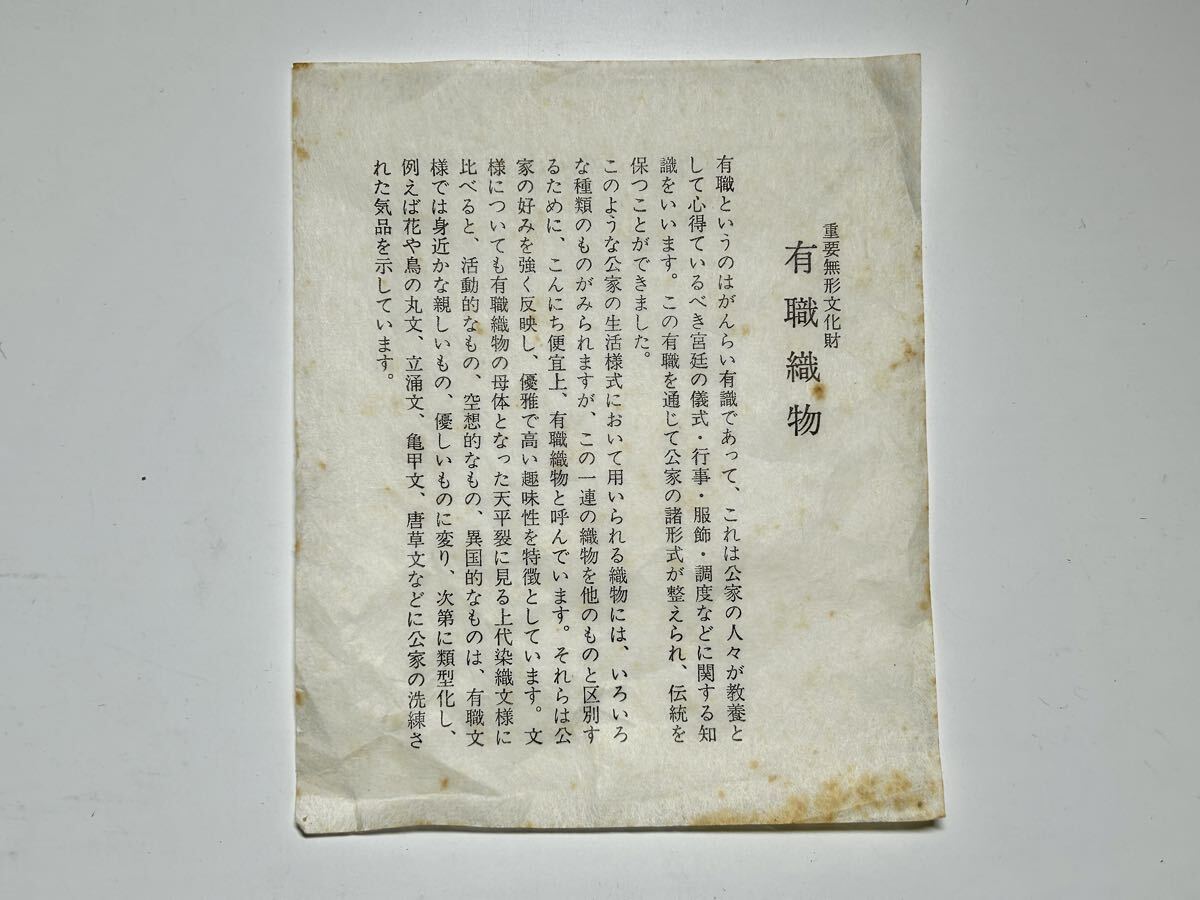 重要無形文化財
有職織物
有職というのはがんらい有識であって、これは公家の人々が教養と
して心得ているべき宮廷の儀式・行事・服飾・調度などに関する知
識をいいます。この有職を通じて公家の諸形式が整えられ、伝統を
保つことができました。
このような公家の生活様式において用いられる織物には、いろいろ
な種類のものがみられますが、この一連の織物を他のものと区別す
るために、こんにち便宜上、有職織物と呼んでいます。それらは公
家の好みを強く反映し、優雅で高い趣味性を特徴としています。文
様についても有職織物の母体となった天平裂に見る上代染織文様に
比べると、活動的なもの、空想的なもの、異国的なものは、有職文
様では身近かな親しいもの、優しいものに変り、次第に類型化し、
例えば花や鳥の丸文、立涌文、亀甲文、唐草文などに公家の洗練さ
れた気品を示しています。